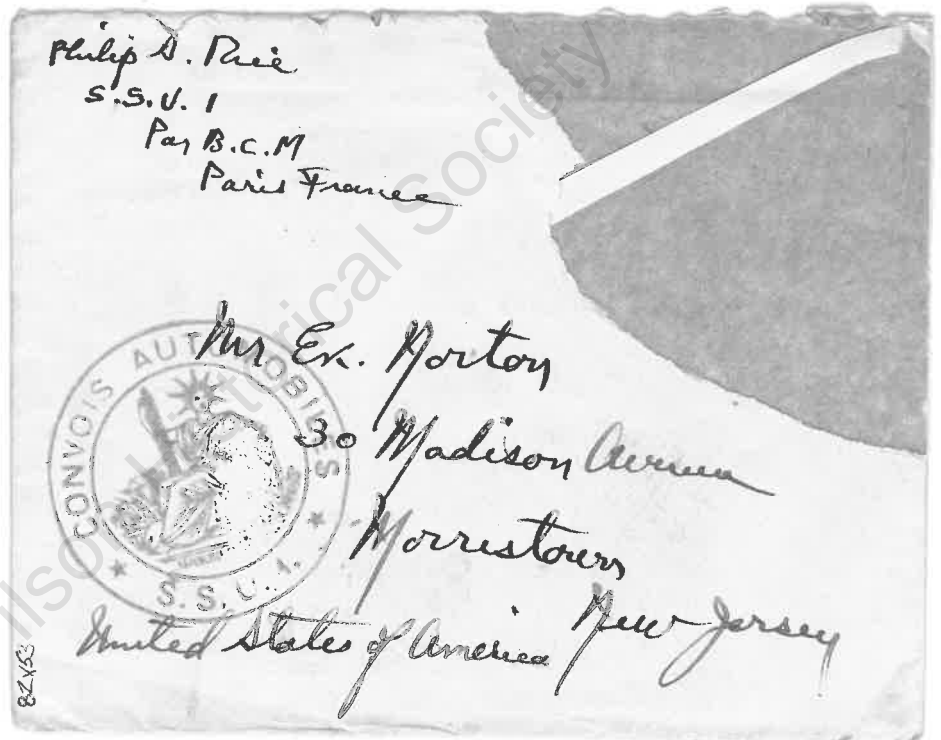 Philip S. Rice
S.S.U. 1
Par B.C.M
Paris France
Mr Ex. Norton
30 Madison Avenue
Morristown
New Jersey
United States of America
CONVOIS AUTOMOBILES
S.S.U.1.
82x53
Historical Society